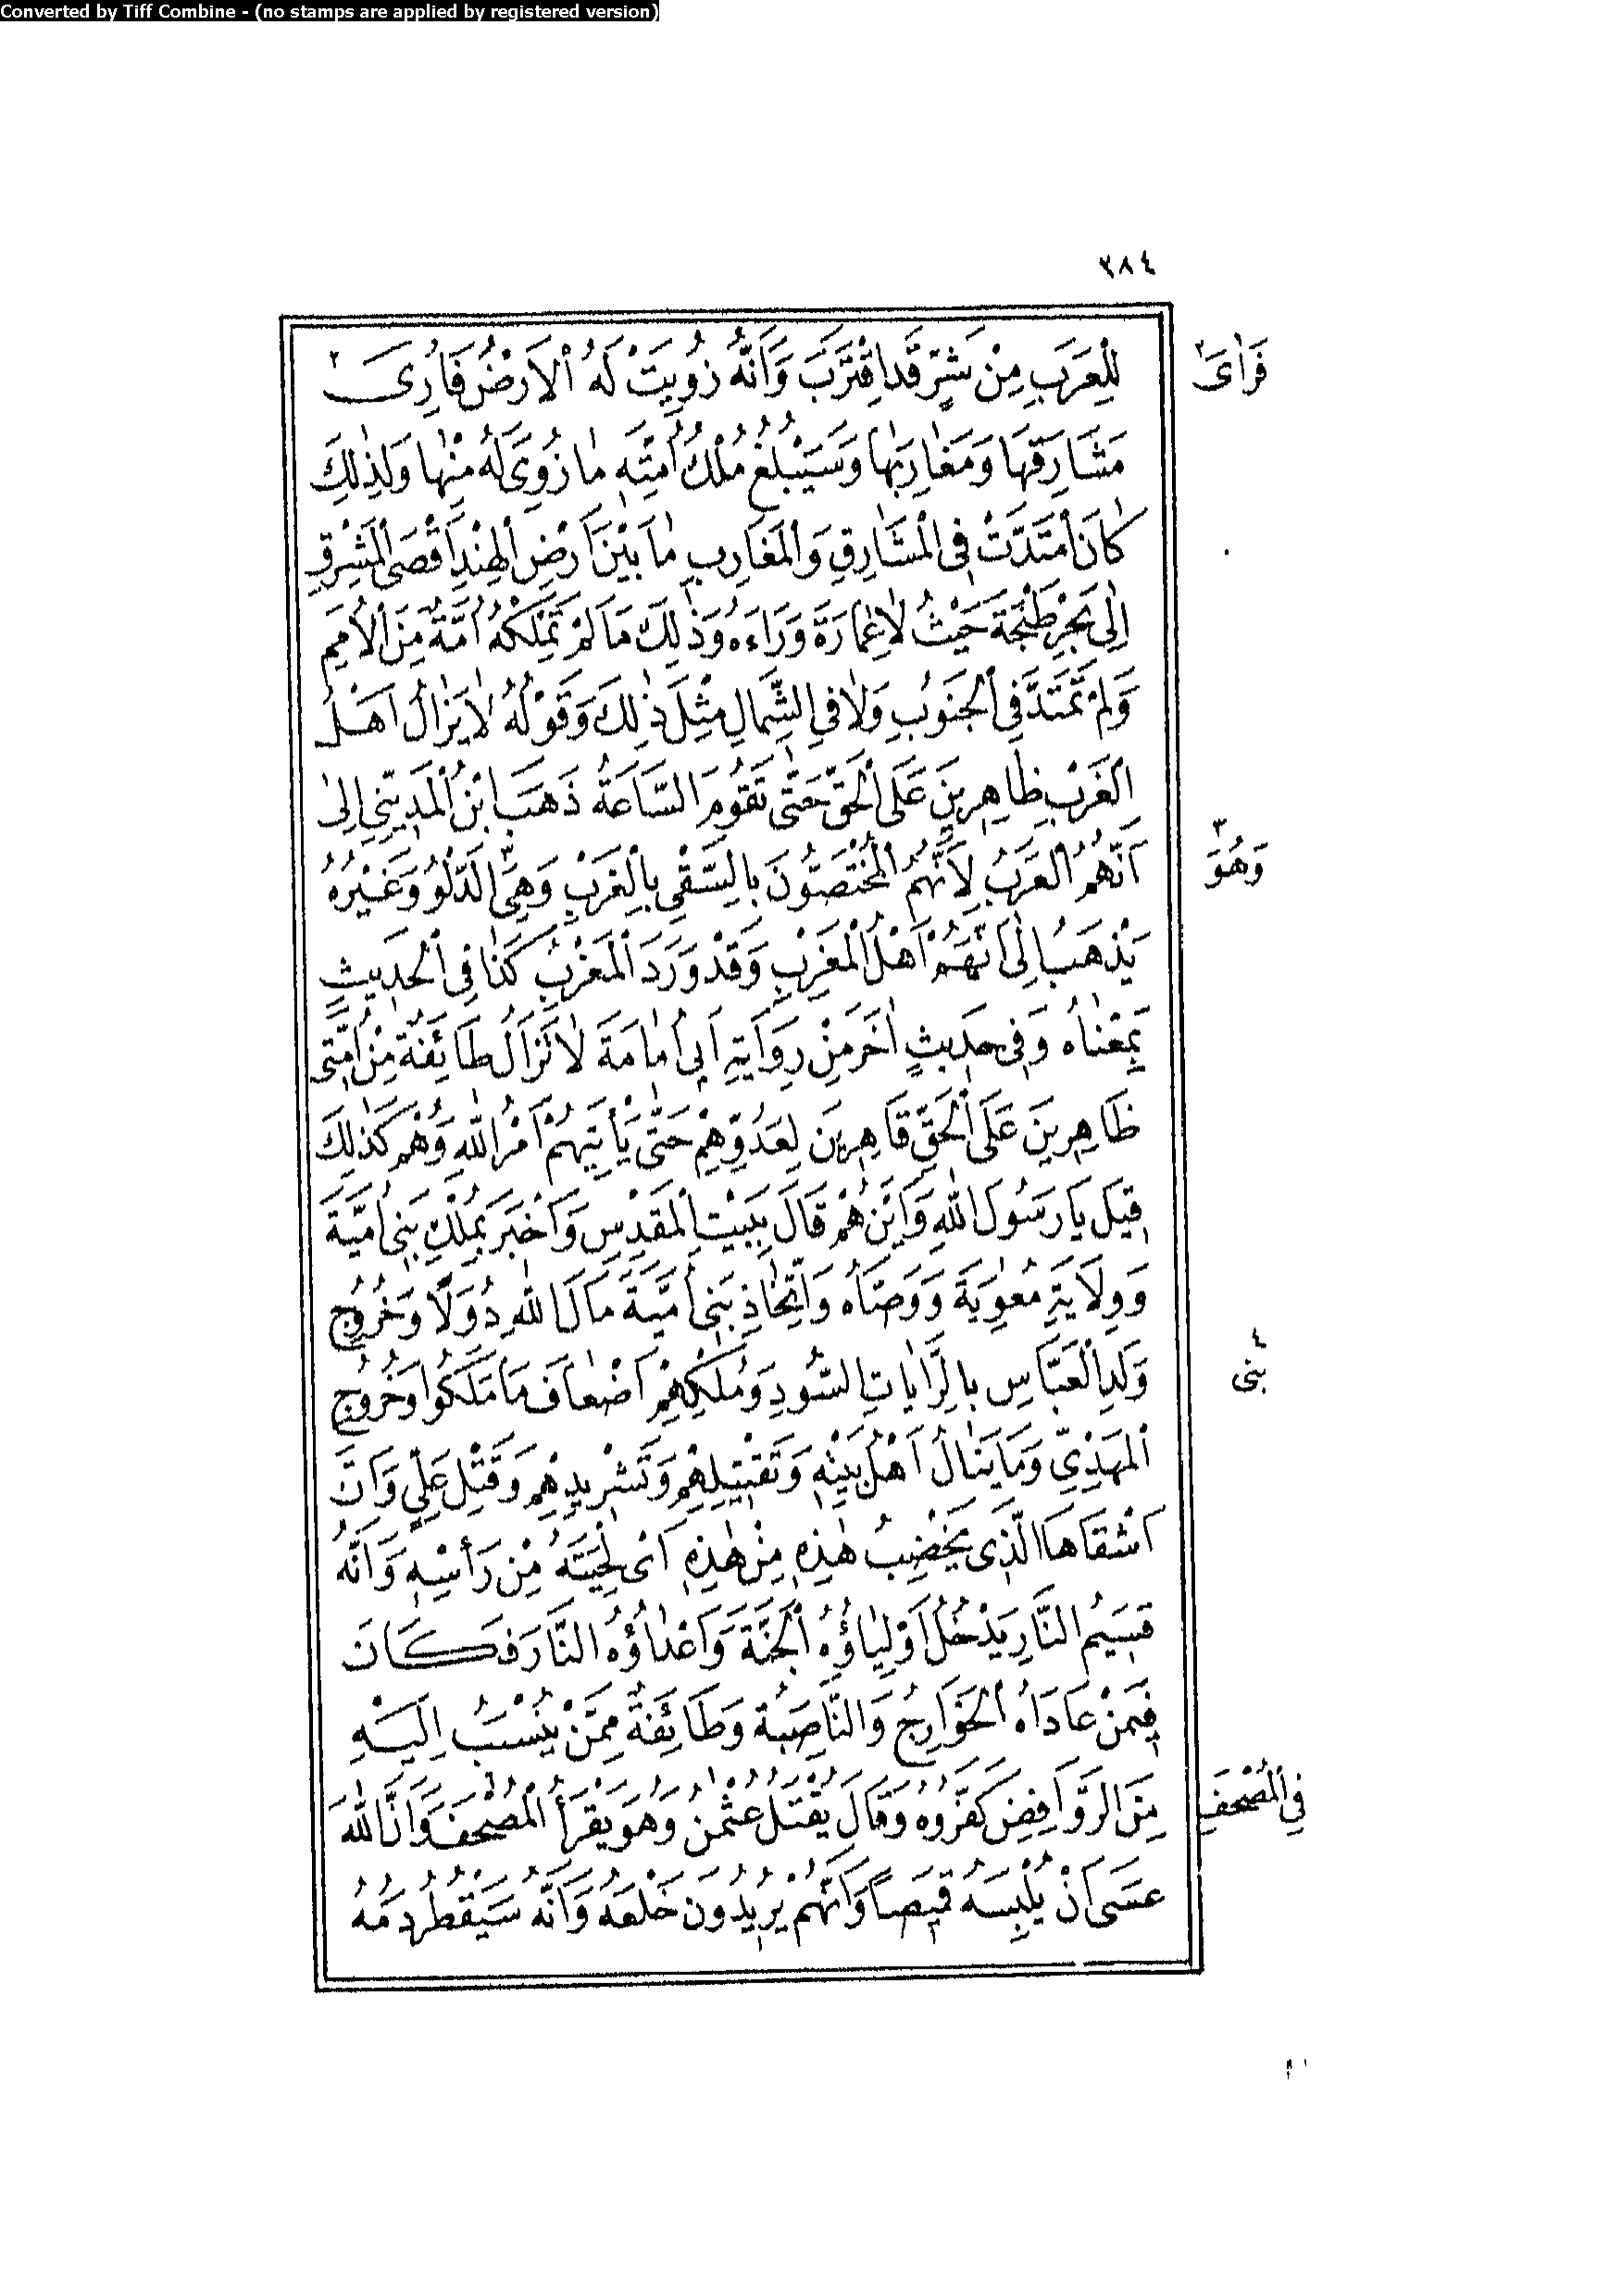 Converted by Tiff Combine - (no stamps are applied by registered version)
٣٨٤
لِلْعَرَبِ مِنْ شَرٍّ قَدِ اقْتَرَبَ وَاَنَّهُ زُوِيَتْ لَهُ الْاَرْضُ فَاُرِىَ ٢
فَرَاٰىَ ٢
مَشَارِقَهَا وَمَغٰارِبَهٰا وَسَيَبْلُغُ مُلْكُ اُمَّتِهِ مٰا زُوِىَ لَهُ مِنْهٰا وَلَذٰلِكَ
كٰانَ اُمْتَدَّتْ فِى الْمَشَارِقِ وَالْمَغَارِبِ مٰا بَيْنَ اَرْضِ الْهِنْدِ اَقْصَى الْمَشْرِقِ
اِلٰى بَحْرِ طَنْجَةَ حَيْثُ لٰا عِمَارَةَ وَرَاءَهُ وَذٰلِكَ مَا لَمْ تَمْلِكْهُ اُمَّةٌ مِنَ الْاُمَمِ
وَلَمْ تَمْتَدَّ فِى الْجَنُوبِ وَلٰا فِى الشِّمَالِ مِثْلَ ذٰلِكَ وَقَوْلُهُ لٰا يَزٰالُ اَهْلُ
الْغَرْبِ ظٰاهِرِينَ عَلَى الْحَقِّ حَتّٰى تَقُومَ السَّاعَةُ ذَهَبَ ابْنُ الْمَدِينِيِّ اِلىٰ
اَنَّهُمُ الْعَرَبُ لِاَنَّهُمُ الْمُخْتَصُّونَ بِالسَّقْيِ بِالْغَرْبِ وَهِىَ ٣ الدَّلْوُ وَغَيْرُهُ
وَهُوَ ٣
يَذْهَبُ اِلٰى اَنَّهُمْ اَهْلُ الْمَغْرِبِ وَقَدْ وَرَدَ الْمَغْرِبُ كَذٰا فِى الْحَدِيثِ
بِمَعْنٰاهُ وَفِى حَدِيثٍ اٰخَرَ مِنْ رِوَايَةِ اَبِى اُمٰامَةَ لٰا تَزَالُ طَائِفَةٌ مِنْ اُمَّتِى
ظَاهِرِينَ عَلَى الْحَقِّ قَاهِرِينَ لِعَدُوِّهِمْ حَتّٰى يَأْتِيَهُمْ اَمْرُ اللّٰهِ وَهُمْ كَذٰلِكَ
قِيلَ يَا رَسُولَ اللّٰهِ وَاَيْنَ هُمْ قَالَ بِبَيْتِ الْمَقْدِسِ وَاَخْبَرَ بِمُلْكِ بَنِى اُمَيَّةَ
وَوِلَايَةِ مُعٰوِيَةَ وَوَصّٰاهُ وَاتِّخٰاذِ بَنِى اُمَيَّةَ مَالَ اللّٰهِ دُوَلًا وَخُرُوجِ
وَلَدِ ٤ الْعَبَّاسِ بِالرَّايٰاتِ السُّودِ وَمُلْكِهِمْ اَضْعٰافَ مَا مَلَكُوا وَخُرُوجِ
٤ بنى
الْمَهْدِيِّ وَمَا يَنٰالُ اَهْلُ بَيْتِهِ وَتَقْتِيلِهِمْ وَتَشْرِيدِهِمْ وَقَتْلِ عَلِيٍّ وَاَنَّ
اَشْقَاهَا الَّذِى يَخْضِبُ هٰذِهِ مِنْ هٰذِهِ اَىْ لِحْيَتَهُ مِنْ رَأْسِهِ وَاَنَّهُ
قَسِيمُ النَّارِ يَدْخُلُ اَوْلِيٰاؤُهُ الْجَنَّةَ وَاَعْدٰاؤُهُ النَّارَ فَكَانَ
فِيمَنْ عَادَاهُ الْخَوَارِجُ وَالنَّاصِبَةُ وَطَائِفَةٌ مِمَّنْ يُنْسَبُ اِلَيْهِ
مِنَ الرَّوَافِضِ كَفَّرُوهُ وَقَالَ يُقْتَلُ عُثْمٰنُ وَهُوَ يَقْرَأُ الْمُصْحَفَ وَاَنَّ اللّٰهَ
فِى الْمُصْحَفِ
عَسٰى اَنْ يُلْبِسَهُ قَمِيصًا وَاَنَّهُمْ يُرِيدُونَ خَلْعَهُ وَاَنَّهُ سَيَقْطُرُ دَمُهُ